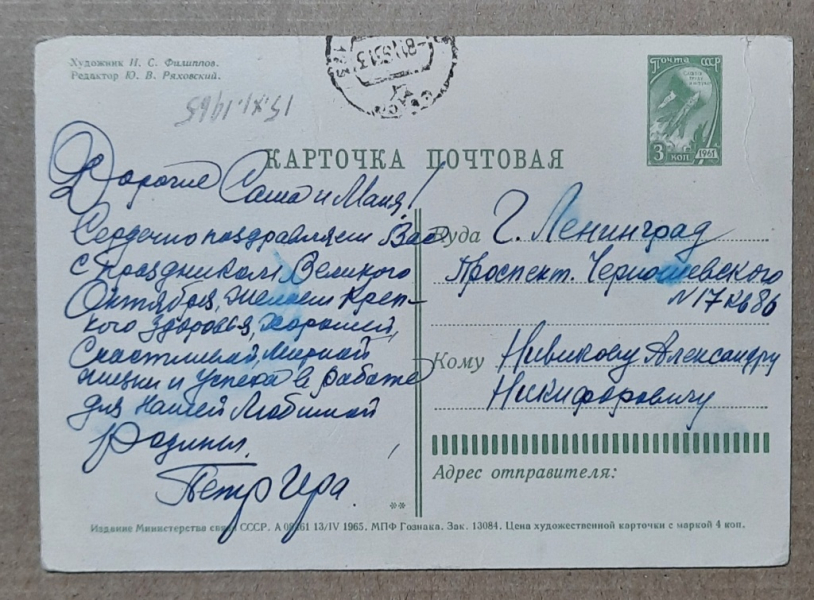 Художник И. С. Филиппов.
Редактор Ю. В. Ряховский.
15.XI.1965
Почта СССР
3 коп
1961
КАРТОЧКА ПОЧТОВАЯ
Дорогие Саша и Маня!
Сердечно поздравляем Вас
с праздником Великого
Октября, Желаем Креп-
кого здоровья, хорошей,
Счастливой, Мирной
жизни и успеха в работе
для нашей Любимой
Родины.
Петр Ира.
Куда г. Ленинград
Проспект. Чернышевского
N 17 кв 86
Кому Новикову Александру
Никифоровичу
Адрес отправителя:
Издание Министерства связи СССР. А 13/IV 1965. МПФ Гознака. Зак. 13084. Цена художественной карточки с маркой 4 коп.